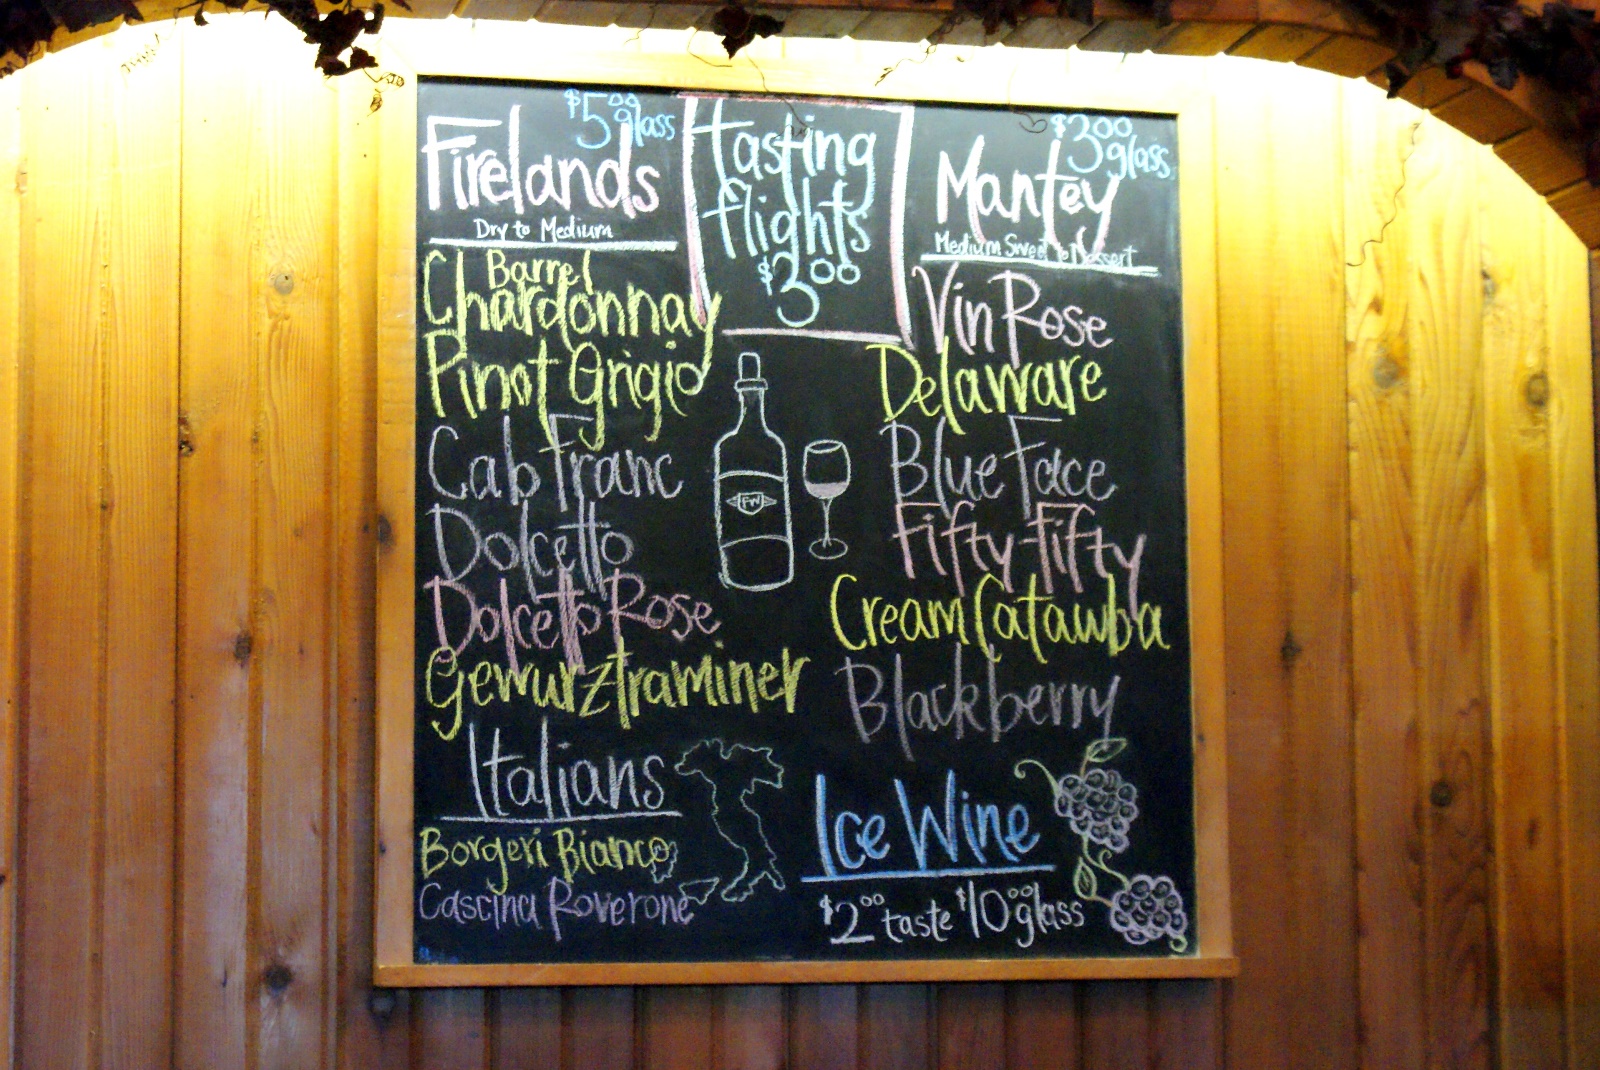 $5.00 glass
Firelands
Dry to Medium
Barrel
Chardonnay
Pinot Grigio
Cab Franc
Dolcetto
Dolcetto Rose
Gewurztraminer
Italians
Borgeri Bianco
Cascina Roverone
Tasting
flights
$3.00
FW
$3.00
glass
Mantey
Medium Sweet to Dessert
Vin Rose
Delaware
Blue Face
Fifty-Fifty
Cream Catawba
Blackberry
Ice Wine
$2.00 taste $10.00 glass